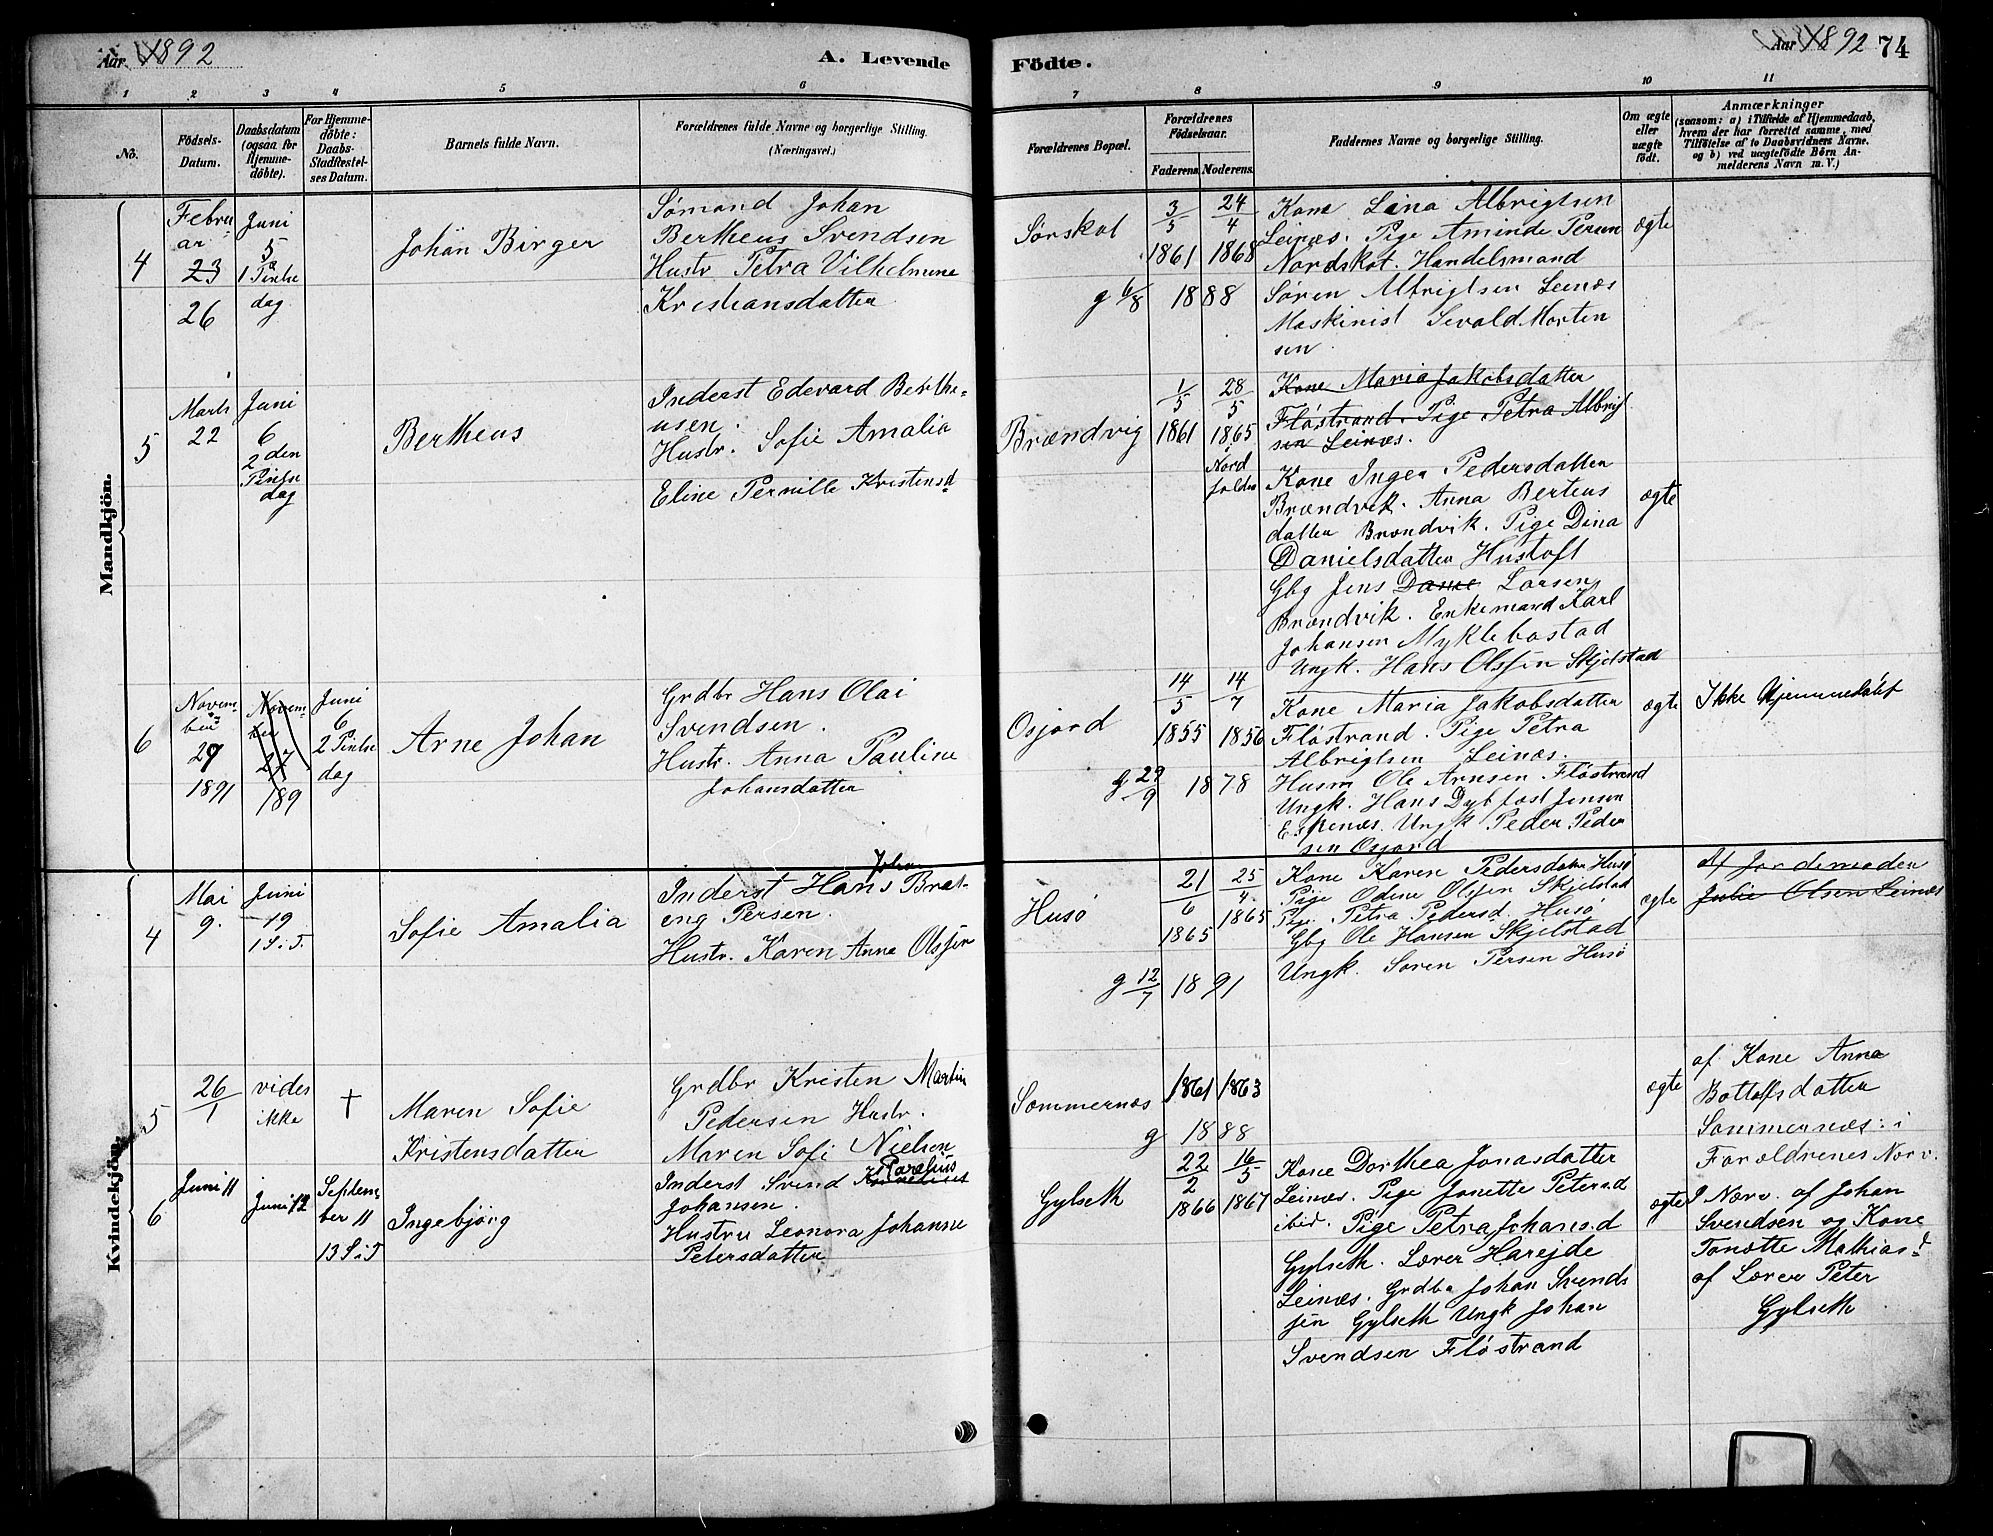 Aar 1892
A. Levende
Födte.
Aar 1892
74
1 2 3 4 5 6 7 8 9 10 11
No.
Födsels-
Datum.
Daabsdatum
(ogsaa for
Hjemme-
döbte).
For Hjemme-
döbte:
Daabs-
Stadfæstel-
ses Datum.
Barnets fulde Navn.
Forældrenes fulde Navne og borgerlige Stilling.
(Næringsvei.)
Forældrenes Bopæl.
Forældrenes
Födselsaar.
Faderens. Moderens.
Faddernes Navne og borgerlige Stilling.
Om ægte
eller
uægte
födt.
Anmærkninger
(saasom: a) i Tilfælde af Hjemmedaab,
hvem der har forrettet samme, med
Tilföielse af to Daabsvidners Navne.
og b) ved uægtefödte Börn An-
melderens Navn m. V.)
Mandkjön.
4
Febru
ar
23
26
Juni
5
1 Pintse
dag
Johan Birger
Sømand Johan
Bertheus Svendsen
Hustr Petra Vilhelmine
Kristiansdatter
Sørskot
3/5
1861
24/4
1868
g 6/8 1888
Kone Lina Albrigtsen
Leinæs. Pige Aminde Persen
Nordskot. Handelsmand
Søren Albrigtsen Leinæs
Maskinist Sevald Morten
sen
ægte
5
Marts
22
Juni
6
2den
Pintse
dag
Bertheus
Inderst Edevard Berthe-
usen.
Hustr. Sofie Amalia
Eline Pernille Kristensd
Brændvig
1/5
1861
28/5
1865
Nord
folden
Kone Maria Jakobsdatter
Fløstrand. Pige Petra Albrigt
sen Leinæs.
Kone Inger Pedersdatter
Brændvik. Anna Berteus
datter Brændvik. Pige Dina
Danielsdatter Hustoft
Gbg Jens Larsen
Brændvik. Enkemand Karl
Johansen Myklebostad
Ungk. Hans Olssen Skjelstad
ægte
6
Novem-
ber
27
1891
Novem-
ber
27
189
Juni
6
2 Pintse
dag
Arne Johan
Grdbr Hans Olai
Svendsen.
Hustr. Anna Pauline
Johansdatter
Osjord
14/5
1855
14/7
1856
g 29/9 1878
Kone Maria Jakobsdatter
Fløstrand. Pige Petra
Albrigtsen Leinæs.
Husm Ole Arnsen Fløstrand
Ungk. Hans Dybfest Jensen
Espenæs. Ungk Peder Peder
sen Osjord
ægte
Ikke Hjemmedøbt
Kvindekjön.
4
Mai
9.
Juni
19
1 S.i.T.
Sofie Amalia
Johan
Inderst Hans Bræt-
eng Persen.
Hustr. Karen Anna Olssen
Husø
21/6
1865
25/4
1865
g 12/7 1891
Kone Karen Pedersdatter Husø
Pige Odine Olssen Skjelstad
Pige Petra Pedersd. Husø
Gbg Ole Hansen Skjelstad
Ungk. Søren Persen Husø
ægte
Af Jordemoden
Julie Olsen Leinæs
5
26/1
vides
ikke
†
Maren Sofie
Kristensdatter
Grdbr Kristen Martin
Pedersen Hustr.
Maren Sofi Nielsen
Sommernæs
1861 1863
g 1888
ægte
af Kone Anna
Bottolfsdatter
Sommernæs: i
Foræeldrenes Nærv.
6
Juni 11
Juni 12
Septem-
ber 11
13 S.i.T
Ingebjørg
Inderst Svend Parelius
Johansen.
Hustru Leonora Johanne
Petersdatter
Gylseth
22/2
1866
16/5
1867
Kone Dorthea Jonasdatter
Leinæs. Pige Jonette Petersd
ibid. Pige Petra Johans.d
Gylseth. Lærer Harejde
Leinæs. Grdbr Johan Svends
sen Gylseth Ungk Johan
Svendsen Fløstrand
ægte
I Nærv. af Johan
Svendsen og Kone
Tonette Mathiasd
af Lærer Peter
Gylseth